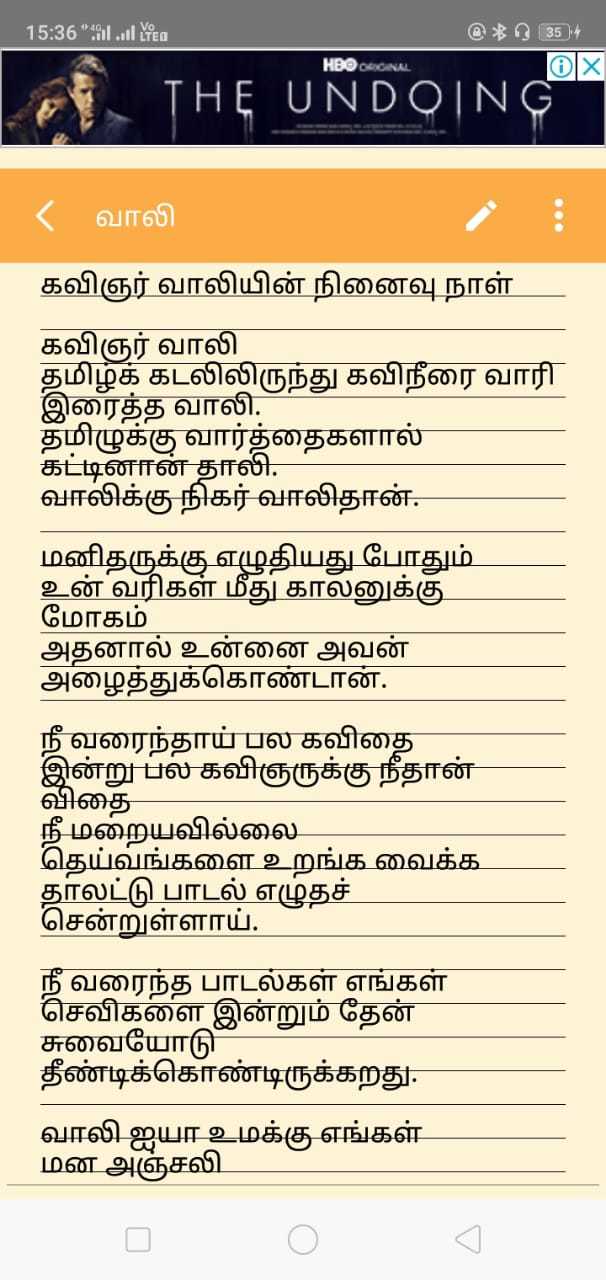 15:36 4G Vo LTE 35
HBO ORIGINAL
THE UNDOING
வாலி
கவிஞர் வாலியின் நினைவு நாள்
கவிஞர் வாலி
தமிழ்க் கடலிலிருந்து கவிநீரை வாரி
இரைத்த வாலி.
தமிழுக்கு வார்த்தைகளால்
கட்டினான் தாலி.
வாலிக்கு நிகர் வாலிதான்.
மனிதருக்கு எழுதியது போதும்
உன் வரிகள் மீது காலனுக்கு
மோகம்
அதனால் உன்னை அவன்
அழைத்துக்கொண்டான்.
நீ வரைந்தாய் பல கவிதை
இன்று பல கவிஞருக்கு நீதான்
விதை
நீ மறையவில்லை
தெய்வங்களை உறங்க வைக்க
தாலட்டு பாடல் எழுதச்
சென்றுள்ளாய்.
நீ வரைந்த பாடல்கள் எங்கள்
செவிகளை இன்றும் தேன்
சுவையோடு
தீண்டிக்கொண்டிருக்கறது.
வாலி ஐயா உமக்கு எங்கள்
மன அஞ்சலி